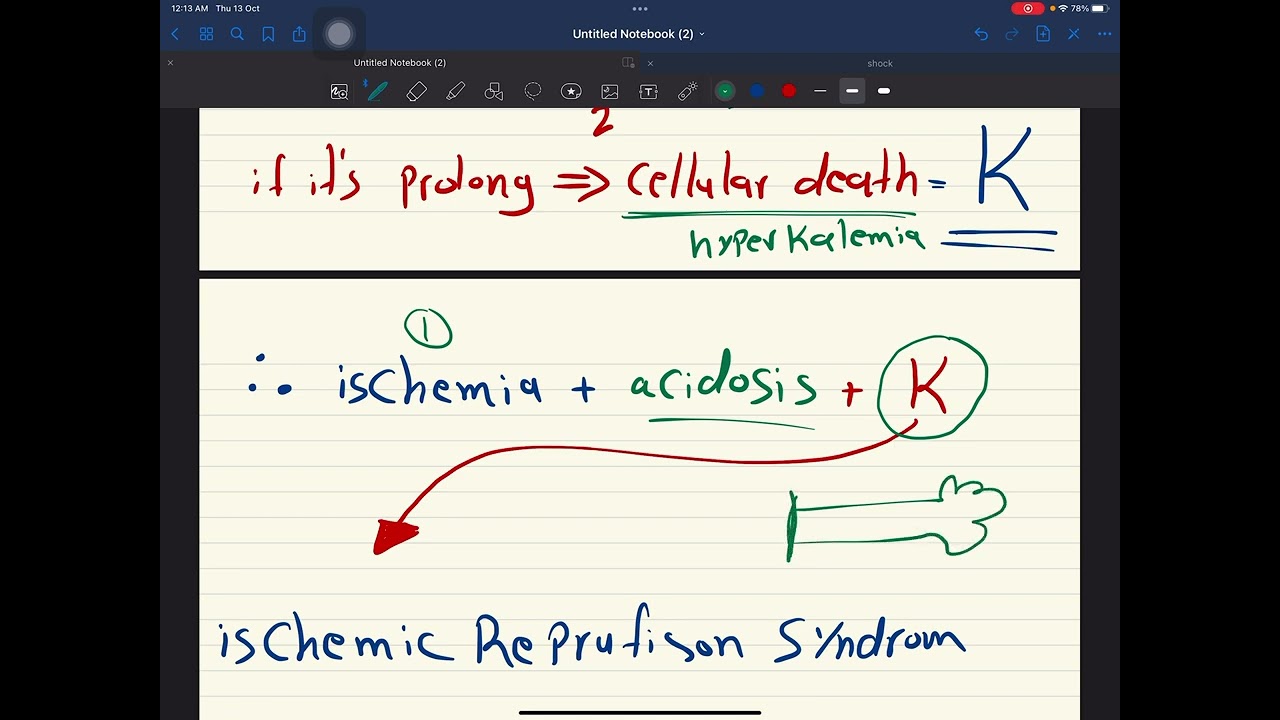 12:13 AM Thu 13 Oct
78%
Untitled Notebook (2)
Untitled Notebook (2)
shock
2
if it's prolong ⇒ cellular death = K
hyperkalemia
1
∴ ischemia + acidosis + K
ischemic Reprufison Syndrom